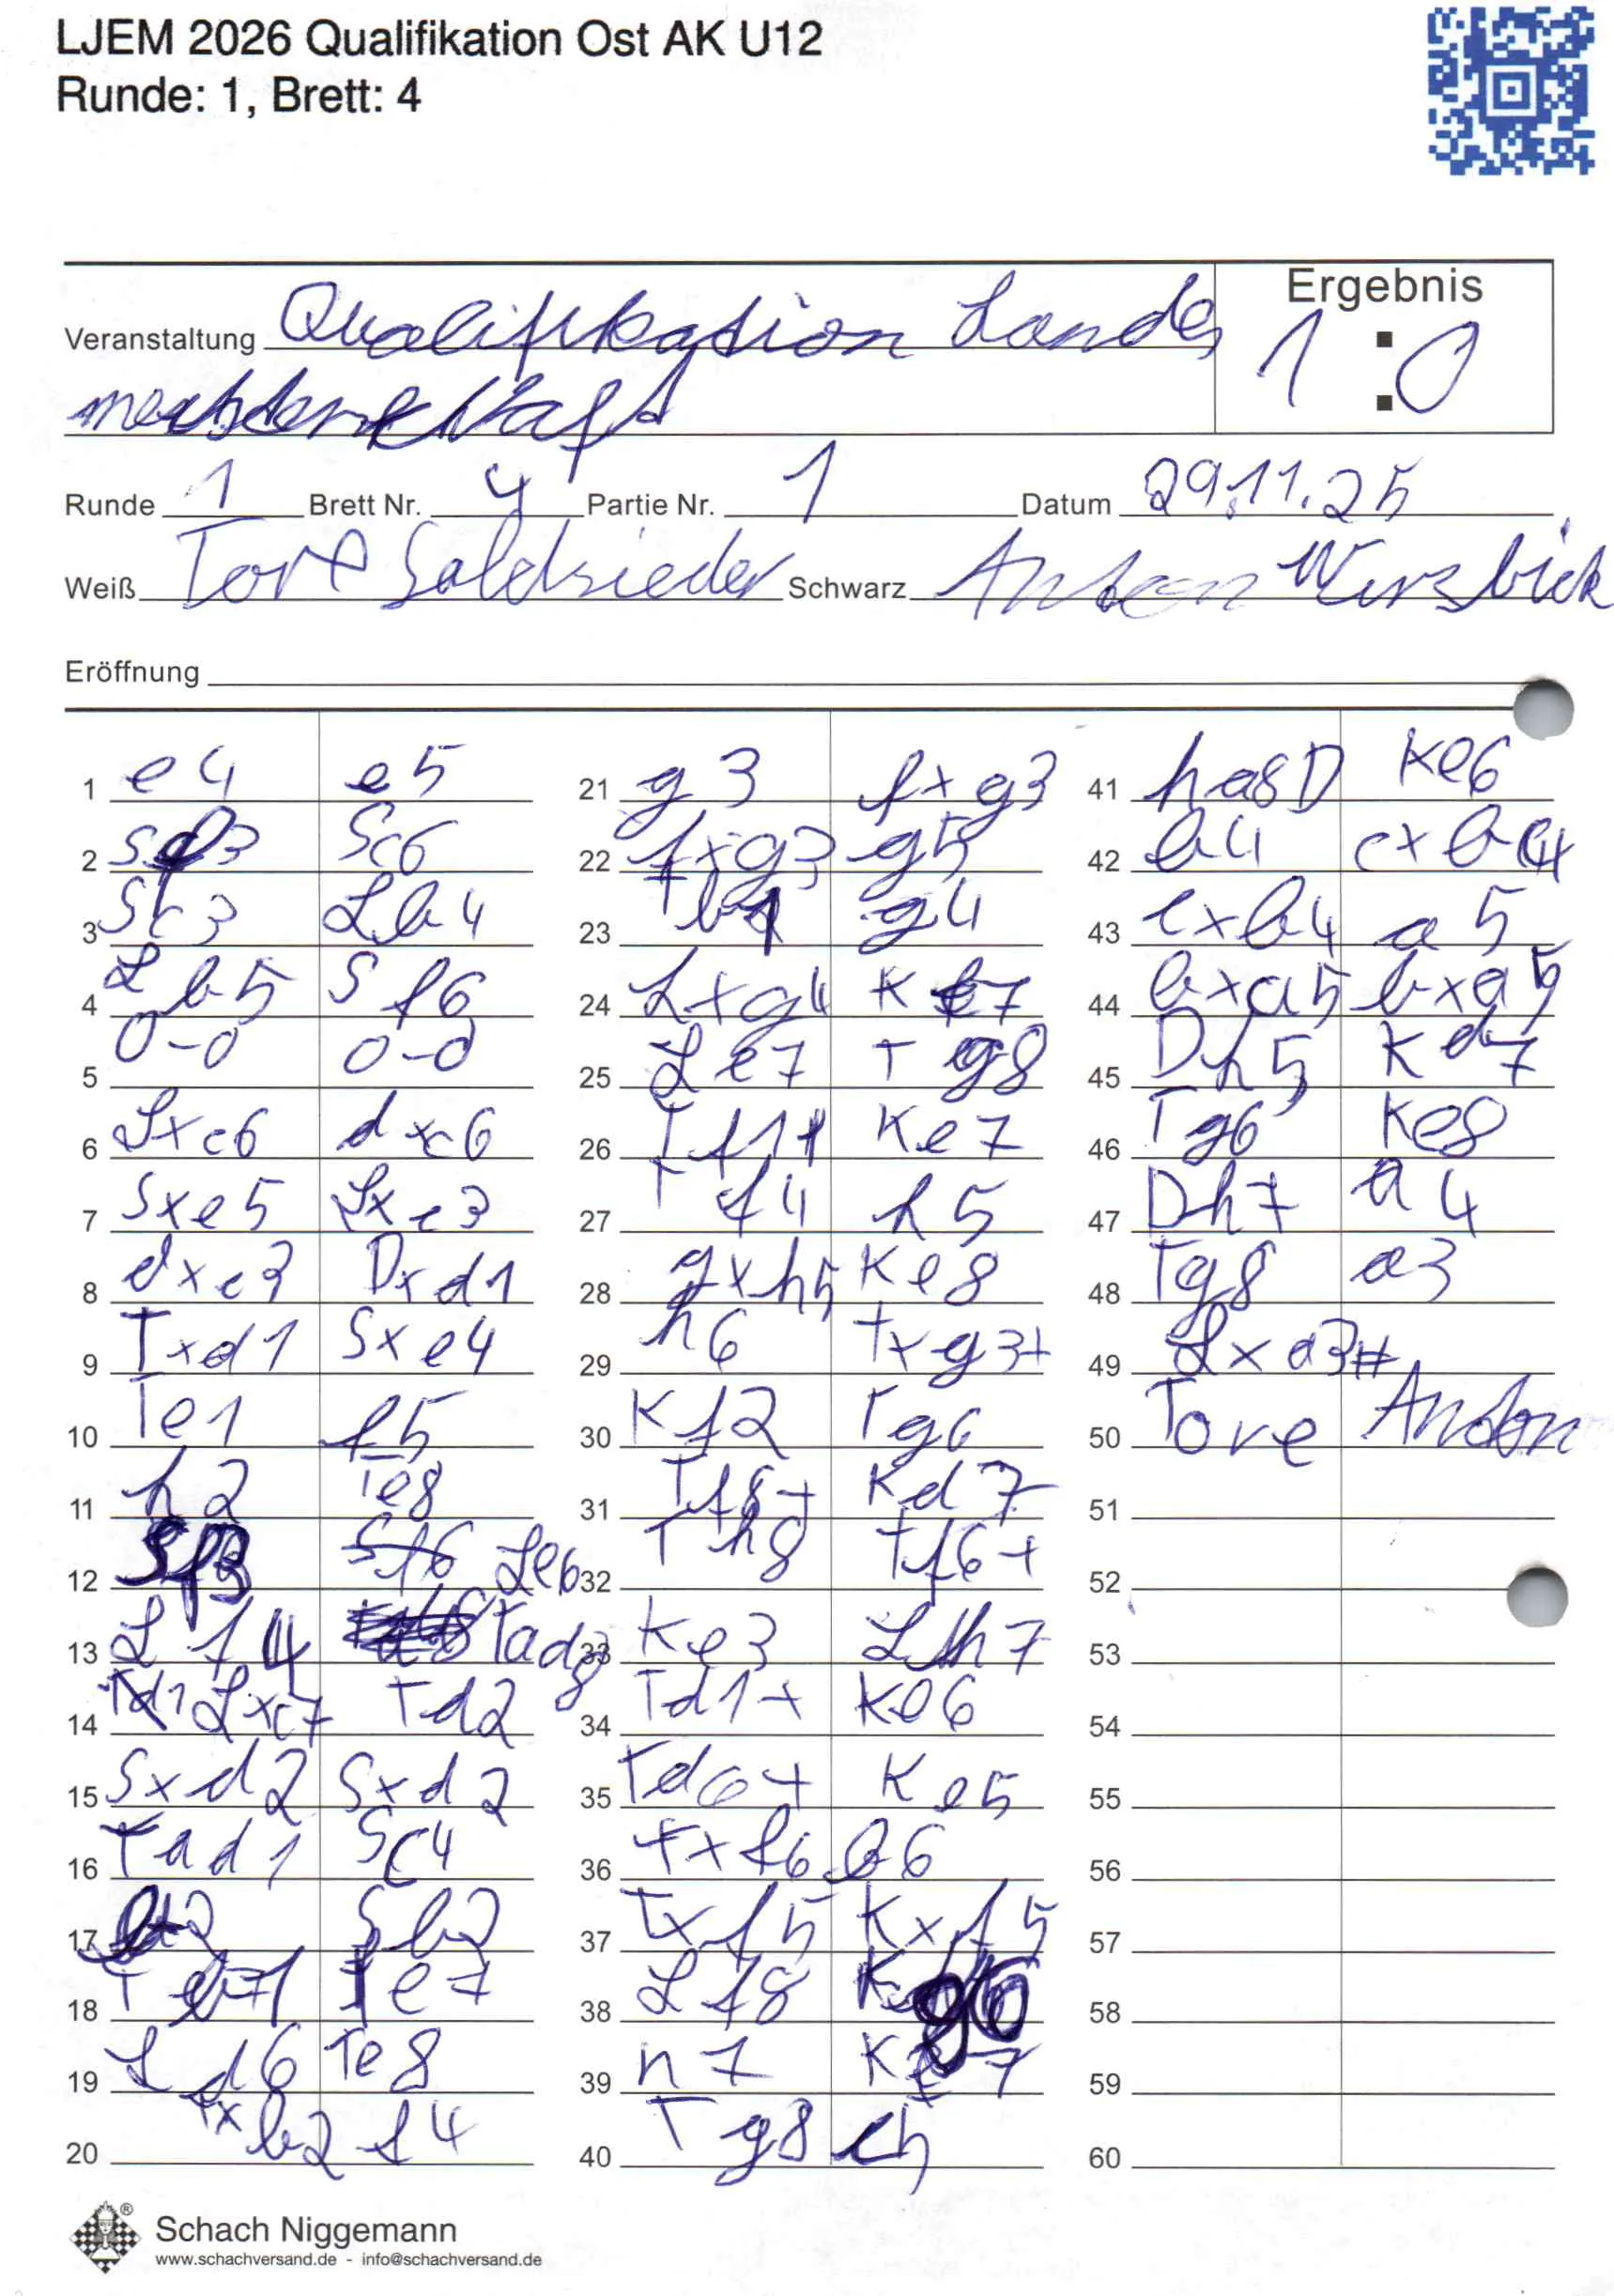 LJEM 2026 Qualifikation Ost AK U12
Runde: 1, Brett: 4
Ergebnis
1 : 0
Veranstaltung Qualifikation Landes
Runde 1 Brett Nr. 4 Partie Nr. 1 Datum 29.11.25
Weiß Tore Schwarz Anton
Eröffnung
1 e4 e5
2 Sf3 Sc6
3 Sc3 Lb4
4 Lb5 Sf6
5 0-0 0-0
6 Lxc6 dxc6
7 Sxe5 Lxc3
8 dxc3 Dxd1
9 Txd1 Sxe4
10 Te1 f5
11 h2 Te8
12 Sf3 Sf6 Le6
13 Lf4 Tad8
14 Td1 Lxc7 Td2
15 Sxd2 Sxd2
16 Tad1 Sc4
17 Sb2
18 T Te7
19 Ld6 Te8
20 Txb2 f4
21 g3 fxg3
22 fxg3 g5
23 Tb1 g4
24 Lxg4 Kf7
25 Le7 Tg8
26 Tf1+ Ke7
27 Tf4 h5
28 gxh5 Ke8
29 h6 Txg3+
30 Kf2 Tg6
31 Tf8+ Kd7
32 Th8 Tf6+
33 Ke3 Lh7
34 Td1+ Ke6
35 Td6+ Ke5
36 Txf6 b6
37 Txf5 Kxf5
38 Lf8 Kg6
39 h7 Kf7
40 Tg8 c5
41 ha8D Ke6
42 b4 cxb4
43 cxb4 a5
44 bxa5 bxa5
45 Dh5 Kd7
46 Tg6 Ke8
47 Dh7 a4
48 Tg8 a3
49 Lxa3#
50 Tore Anton
51
52
53
54
55
56
57
58
59
60
Schach Niggemann
www.schachversand.de - info@schachversand.de